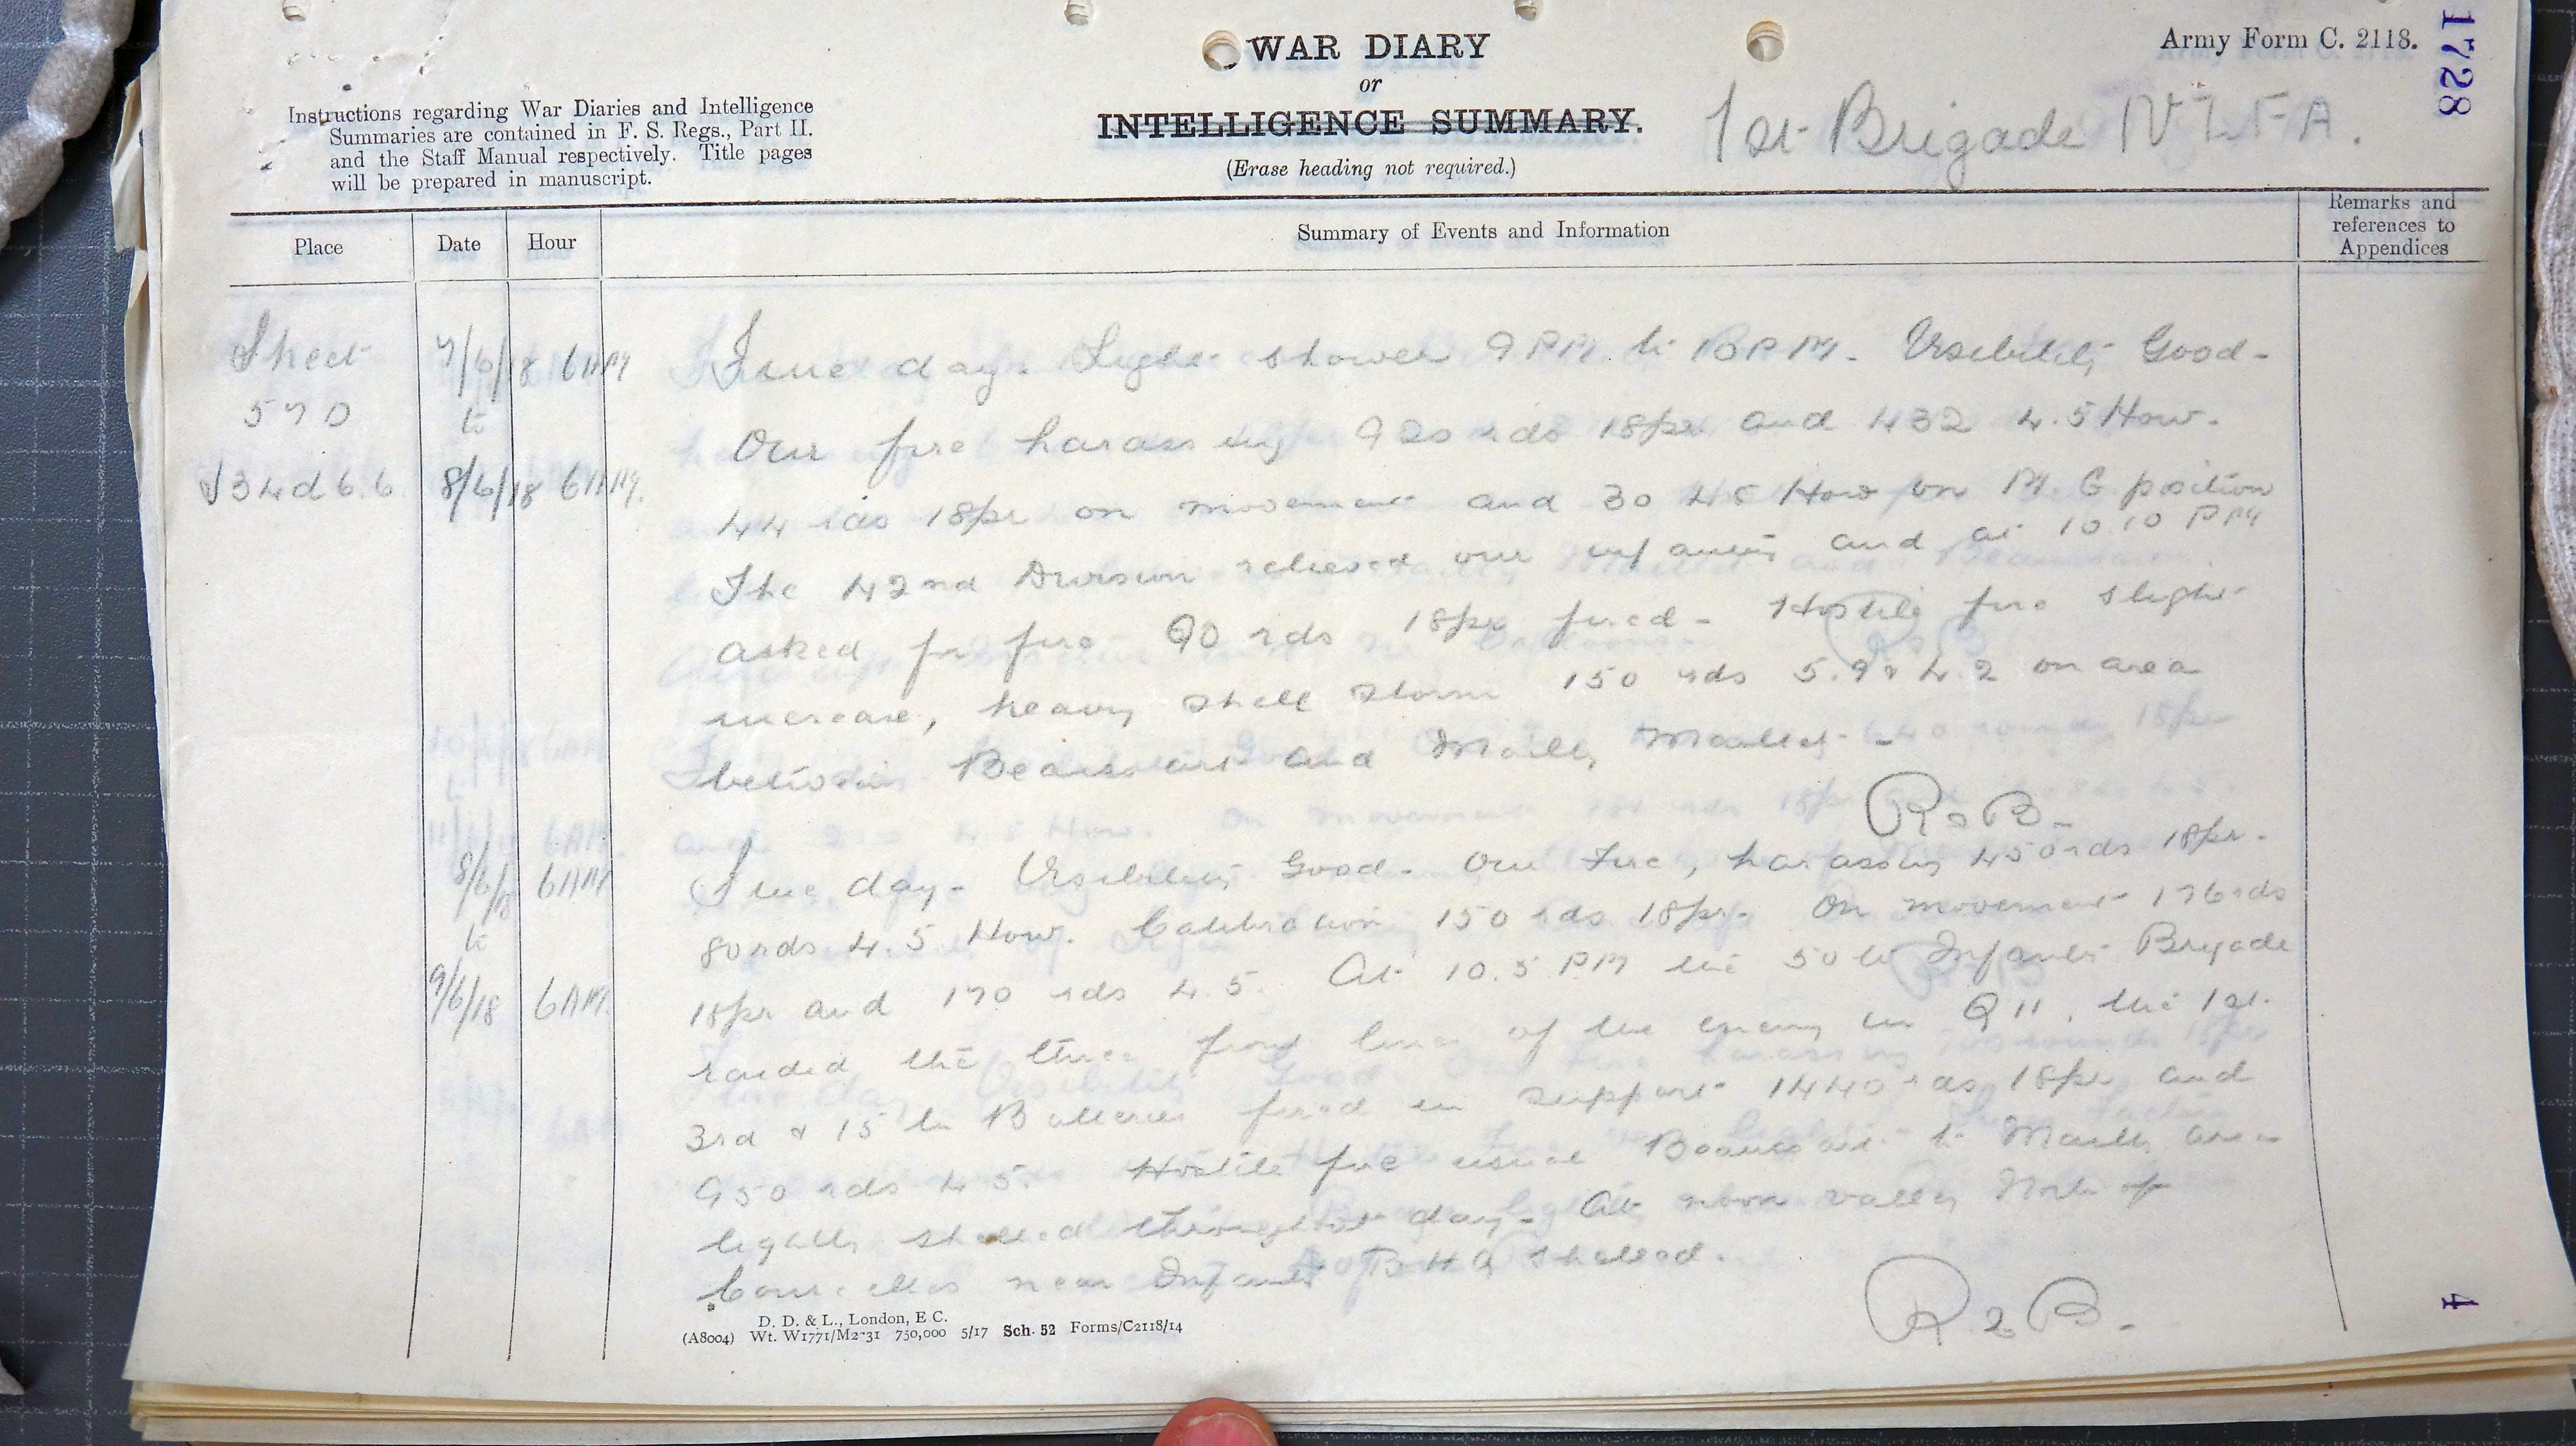 WAR DIARY
or
INTELLIGENCE SUMMARY.
(Erase heading not required.)
Army Form C. 2118.
1728
Instructions regarding War Diaries and Intelligence
Summaries are contained in F. S. Regs., Part II.
and the Staff Manual respectively. Title pages
will be prepared in manuscript.
1st Brigade NZFA.
Place
Date
Hour
Summary of Events and Information
Remarks and
references to
Appendices
Sheet
57D
J34d6.6
7/6/18 6AM
to
8/6/18 6AM.
Fine day. Light shower 9PM. to 10PM. Visibility Good-
Our fire harassing 920 rds 18pr and 432 4.5 How.
44 rds 18pr on movement and 30 45 How on M.G position
The 42nd Division relieved our infantry and at 10.10 PM
asked for fire 90 rds 18pr fired - Hostile fire slight
increase, heavy shell storm 150 rds 5.9 & 4.2 on area
between Beaussart and Mailly Maillet -
R 2 B.
8/6/18 6AM
to
9/6/18 6AM.
Fine day - Visibility Good - Our Fire, harassing 450 rds 18pr.
80 rds 4.5 How. Calibration 150 rds 18pr. On movement 176 rds
18pr and 170 rds 4.5. At 10.5 PM the 50th Infantry Brigade
raided the three front lines of the enemy in Q11, the 1st
3rd & 15th Batteries fired in support 1440 rds 18pr and
950 rds 4 5. Hostile fire usual Beaussart to Mailly area
lightly shelled throughout day - At noon valley North of
Courcelles near Infantry BHQ shelled.
R 2 B.
D. D. & L., London, E C.
(A8004) Wt. W1771/M2-31 750,000 5/17 Sch. 52 Forms/C2118/14
4